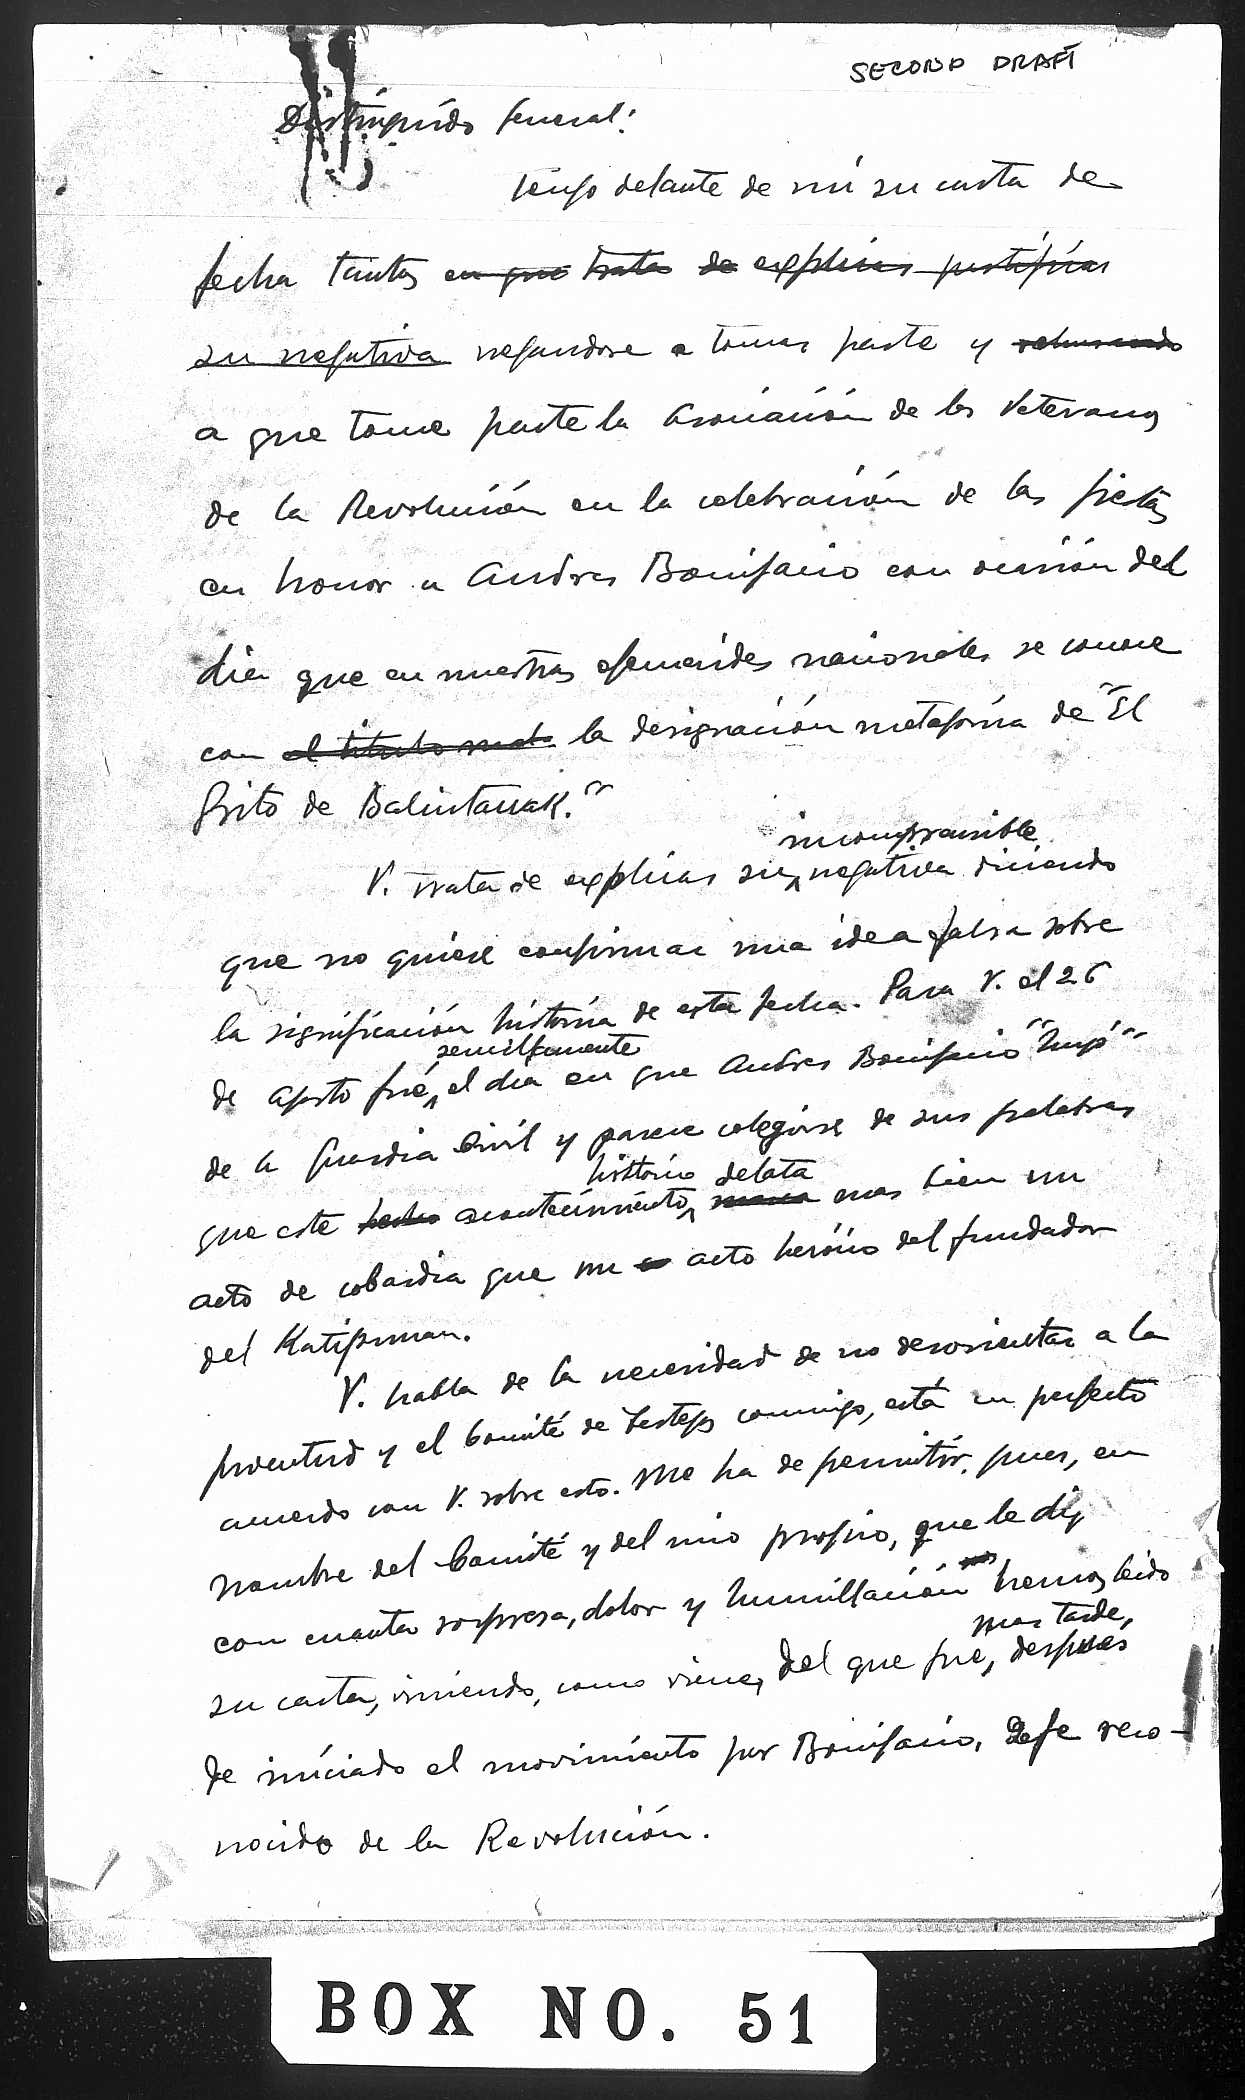 SECOND DRAFT
Distinguido General:
Tengo delante de mí su carta de
fecha tantos en que trata de explicar justificar
su negativa negandose a tomar parte y rehusando
a que tome parte la Asociación de los Veteranos
de la Revolución en la celebración de las fiestas
en honor a Andres Bonifacio con ocasión del
dia que en nuestras efemerides nacionales se conoce
con el titulo la designación metafórica de "El
Grito de Balintawak."
incomprensible
V. trata de explicar su negativa diciendo
que no quiere confirmar una idea falsa sobre
la significación histórica de esta fecha. Para V. el 26
sencillamente
de Agosto fué el dia en que Andres Bonifacio "huyó"
de la Guardia Civil y parece colegirse de sus palabras
histórico delata
que este hecho acontecimiento marca mas bien un
acto de cobardia que un acto heróico del fundador
del Katipunan.
V. habla de la necesidad de no desorientar a la
juventud y el Comité de Festejos conmigo, está en perfecto
acuerdo con V. sobre esto. Me ha de permitir, pues, en
nombre del Comité y del mio propio, que le diga
con cuanta sorpresa, dolor y humillación hemos leido
mas tarde,
su carta, viniendo, como viene, del que fue, despues
de iniciado el movimiento por Bonifacio, Jefe reco-
nocido de la Revolución.
BOX NO. 51